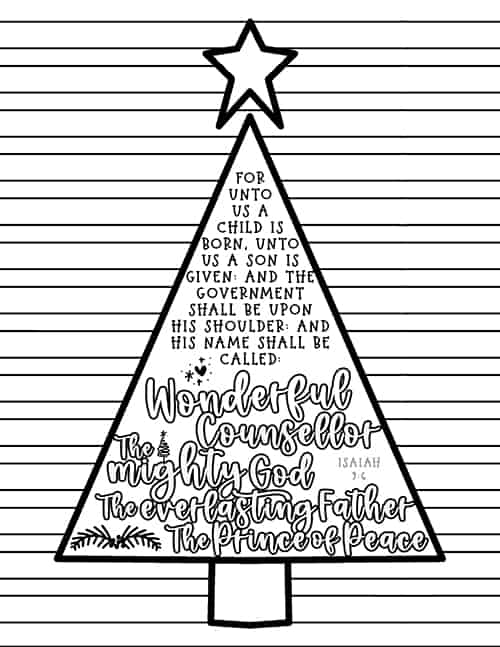 FOR
UNTO
US A
CHILD IS
BORN, UNTO
US A SON IS
GIVEN: AND THE
GOVERNMENT
SHALL BE UPON
HIS SHOULDER: AND
HIS NAME SHALL BE
CALLED:
Wonderful
Counsellor
The
mighty God
ISAIAH
9:6
The everlasting Father
The Prince of Peace